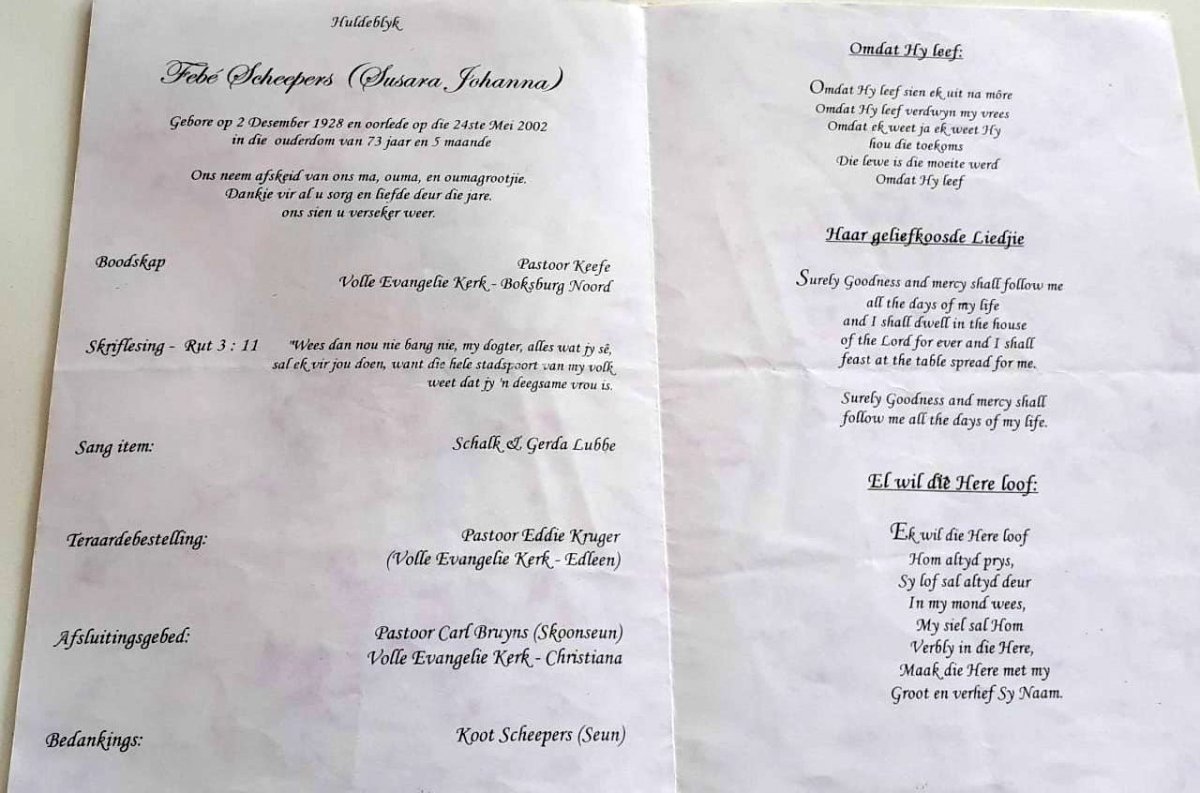 Huldeblyk
Febé Scheepers (Susara Johanna)
Gebore op 2 Desember 1928 en oorlede op die 24ste Mei 2002
in die ouderdom van 73 jaar en 5 maande
Ons neem afskeid van ons ma, ouma, en oumagrootjie.
Dankie vir al u sorg en liefde deur die jare.
ons sien u verseker weer.
Boodskap Pastoor Keefe
Volle Evangelie Kerk - Boksburg Noord
Skriflesing - Rut 3 : 11 "Wees dan nou nie bang nie, my dogter, alles wat jy sê,
sal ek vir jou doen, want die hele stadspoort van my volk
weet dat jy 'n deegsame vrou is.
Sang item: Schalk & Gerda Lubbe
Teraardebestelling: Pastoor Eddie Kruger
(Volle Evangelie Kerk - Edleen)
Afsluitingsgebed: Pastoor Carl Bruyns (Skoonseun)
Volle Evangelie Kerk - Christiana
Bedankings: Koot Scheepers (Seun)
Omdat Hy leef:
Omdat Hy leef sien ek uit na môre
Omdat Hy leef verdwyn my vrees
Omdat ek weet ja ek weet Hy
hou die toekoms
Die lewe is die moeite werd
Omdat Hy leef
Haar geliefkoosde Liedjie
Surely Goodness and mercy shall follow me
all the days of my life
and I shall dwell in the house
of the Lord for ever and I shall
feast at the table spread for me.
Surely Goodness and mercy shall
follow me all the days of my life.
El wil die Here loof:
Ek wil die Here loof
Hom altyd prys,
Sy lof sal altyd deur
In my mond wees,
My siel sal Hom
Verbly in die Here,
Maak die Here met my
Groot en verhef Sy Naam.